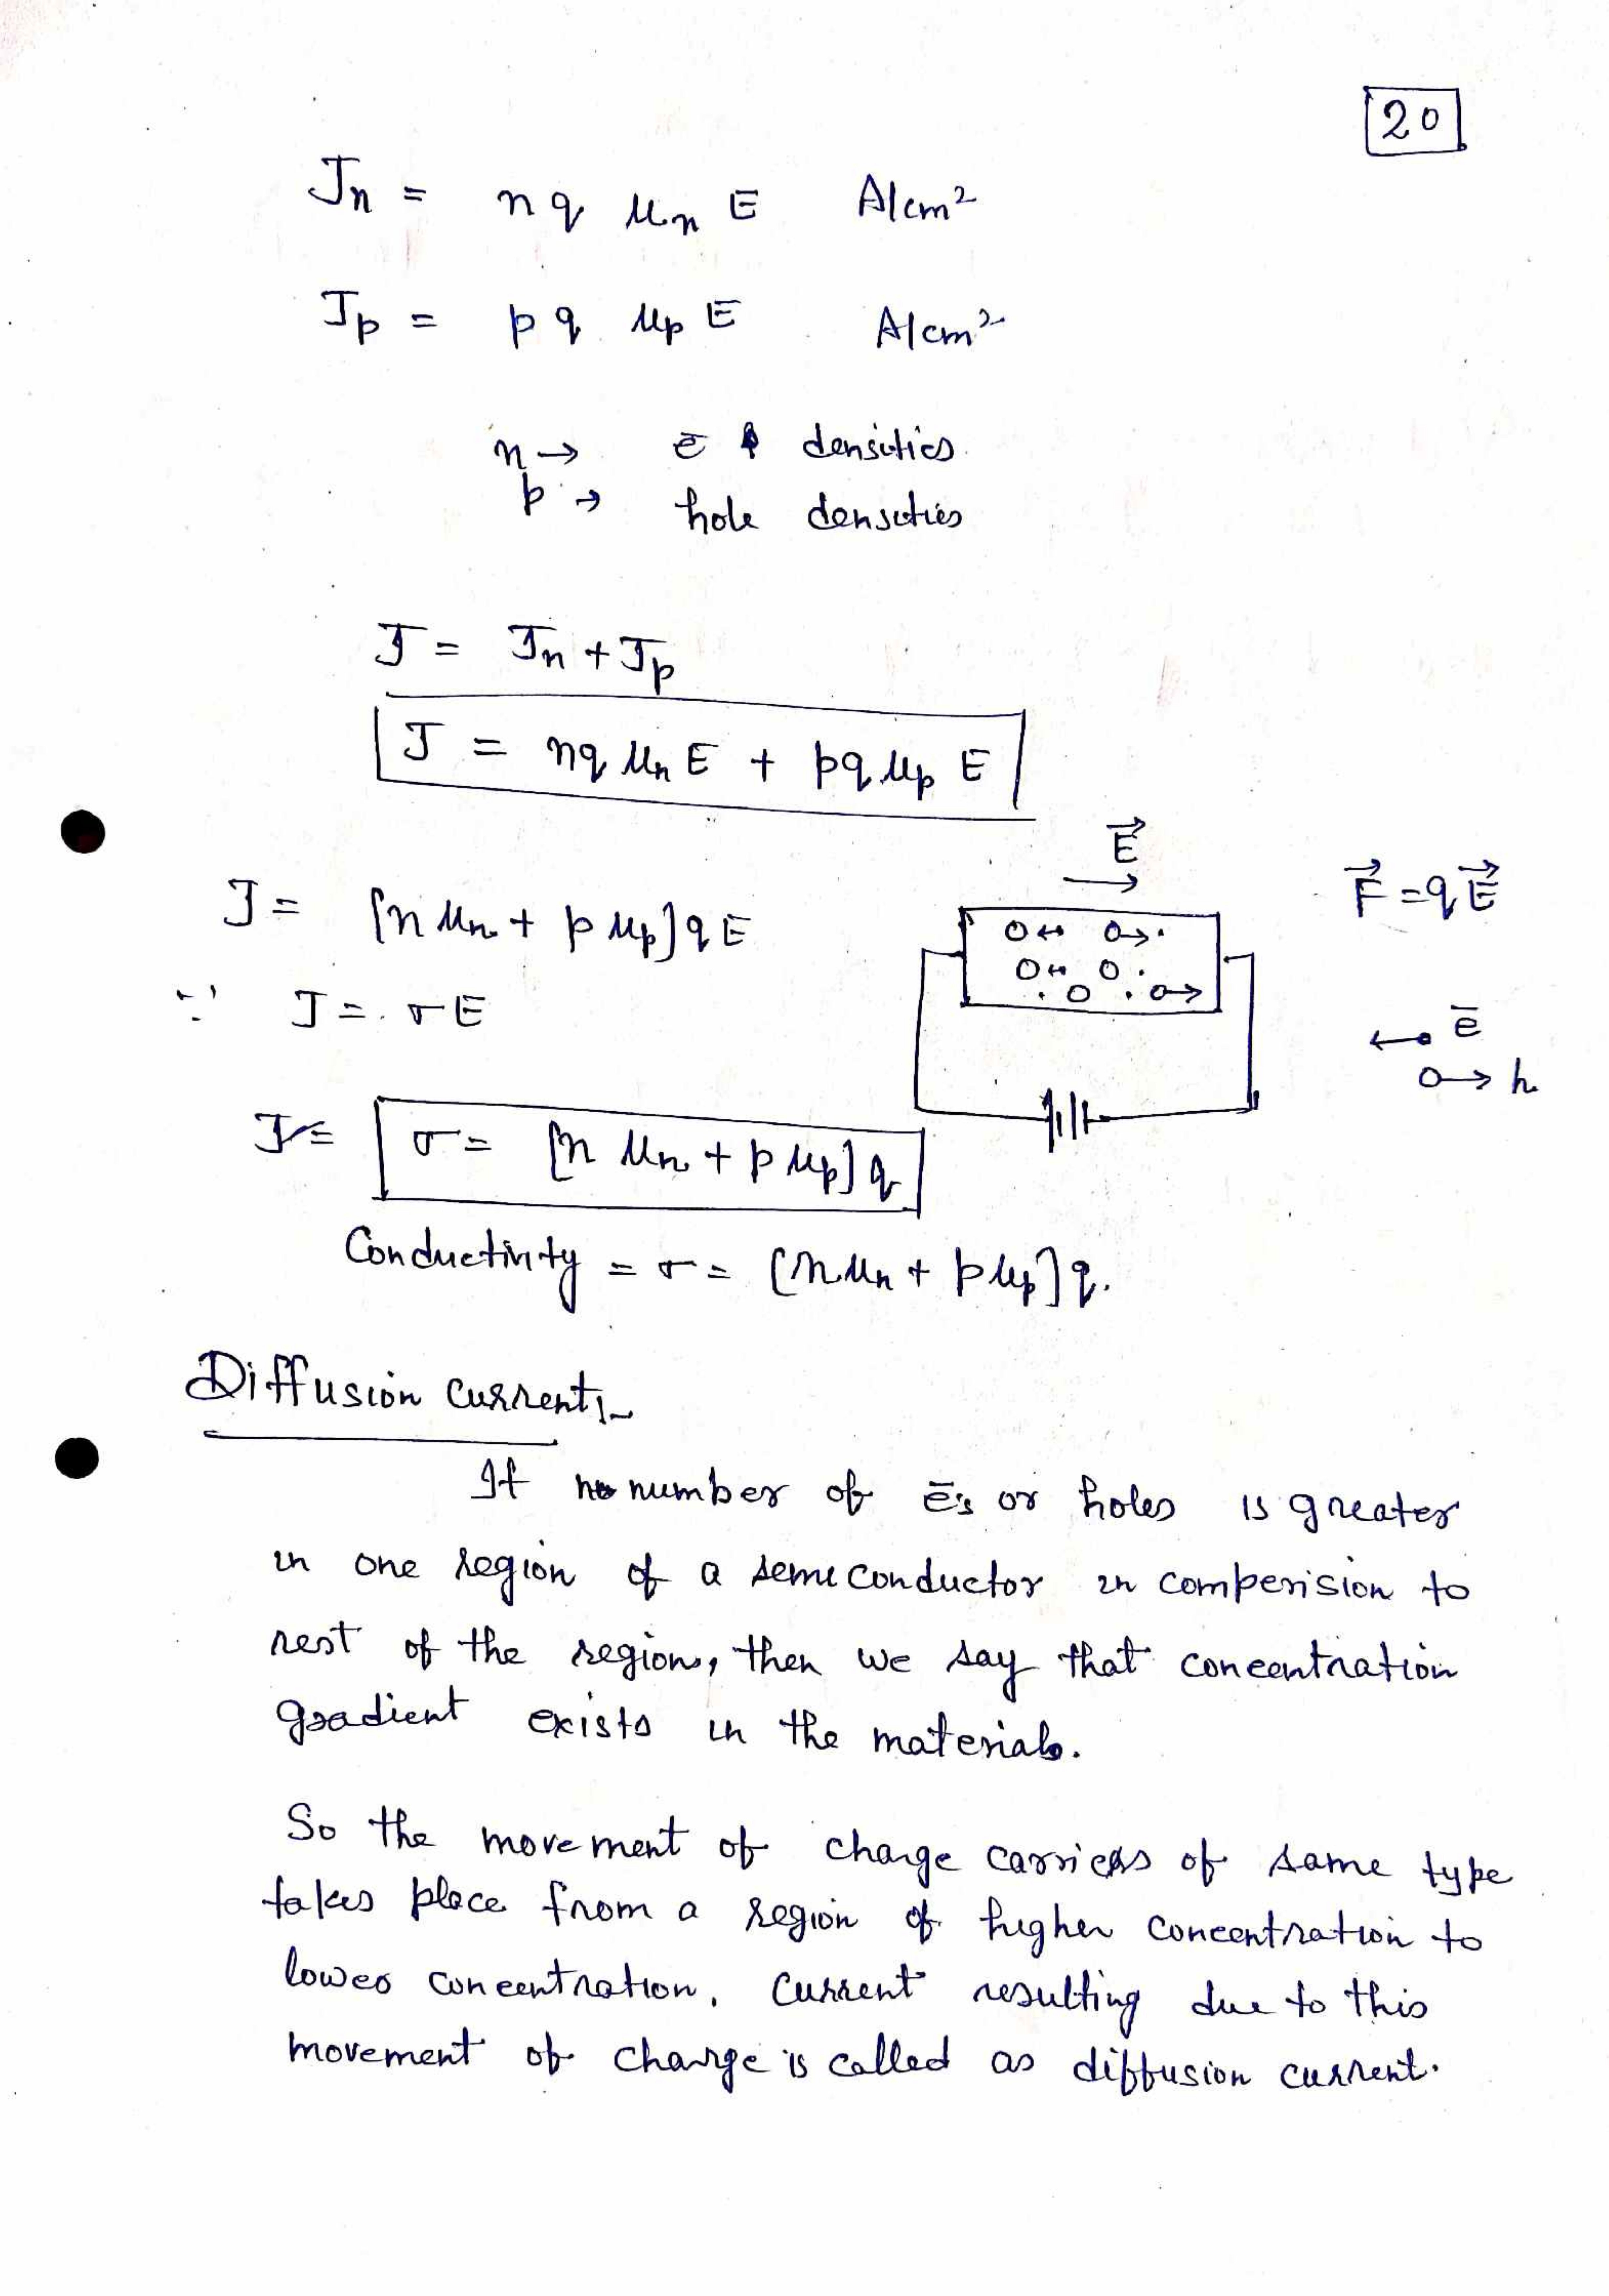 20
Jn = nq μn E A/cm²
Jp = pq μp E A/cm²
n → ē densities
p → hole densities
J = Jn + Jp
J = nq μn E + pq μp E
J = [n μn + p μp] q E
∵ J = σE
E⃗
F⃗ = qE⃗
ē
h
σ = [n μn + p μp] q
Conductivity = σ = [n μn + p μp] q.
Diffusion current:-
If number of ē's or holes is greater
in one region of a semiconductor in comperision to
rest of the region, then we say that concentration
gradient exists in the material.
So the movement of charge carriers of same type
takes place from a region of higher concentration to
lower concentration. Current resulting due to this
movement of charge is called as diffusion current.